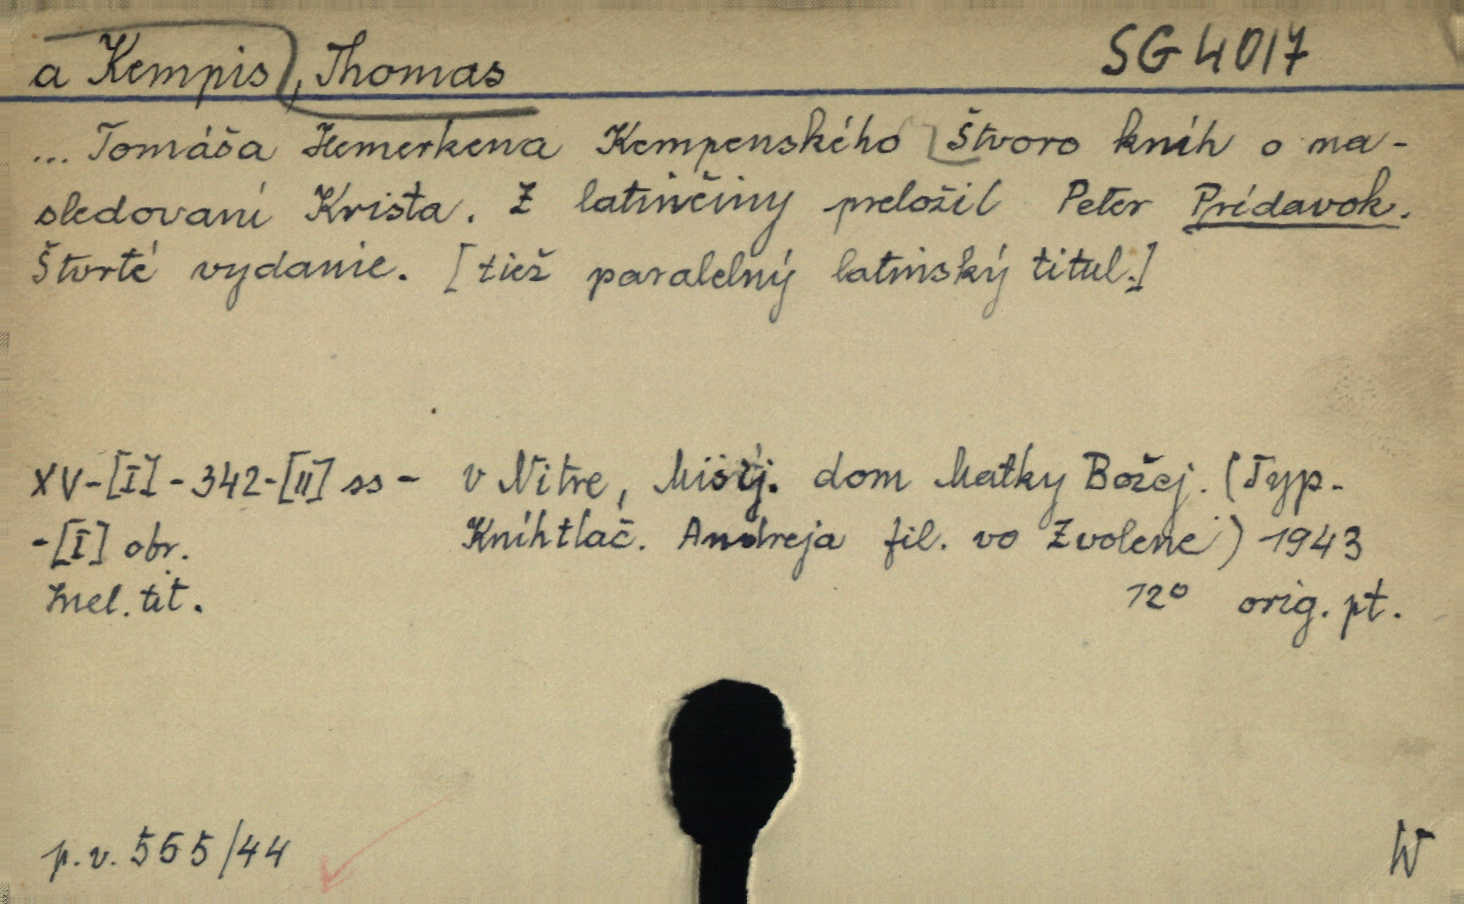 a Kempis, Thomas SG 4017
... Tomáša Hemerkena Kempenského Štvoro kníh o na-
sledovaní Krista. Z latinčiny preložil Peter Prídavok.
Štvrté vydanie. [tiež paralelný latinský titul.]
XV-[I]-342-[II] ss - v Nitre, Misij. dom Matky Božej. (Typ.
-[I] obr. Kníhtlač. Andreja fil. vo Zvolene) 1943
mel. tit. 12° orig. pt.
p. v. 565/44 W